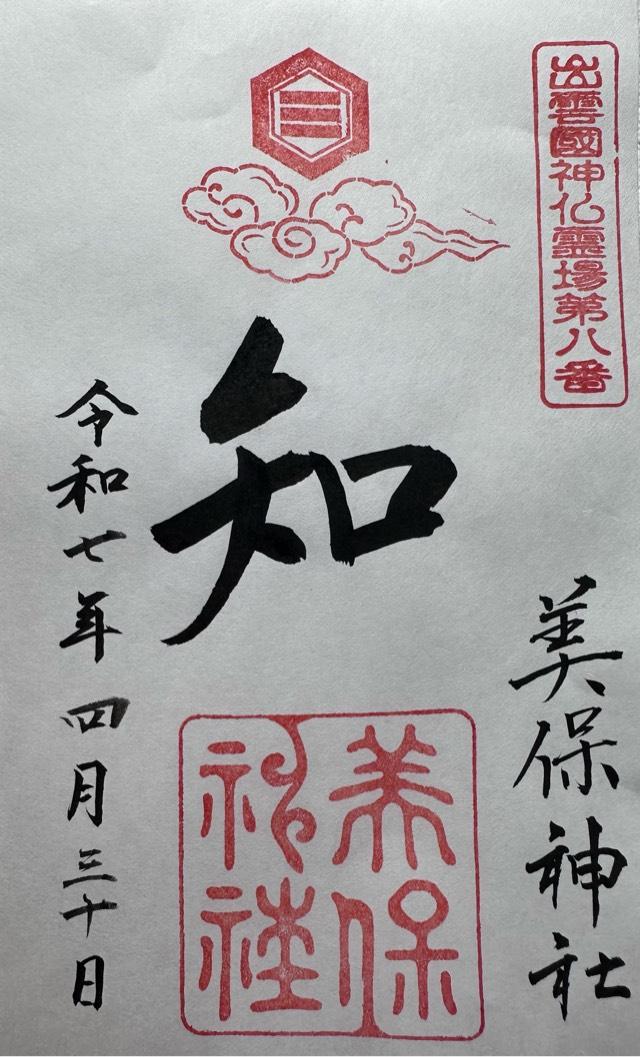 出雲國神仏霊場第八番
美保神社
知
美保
神社
令和七年四月三十日